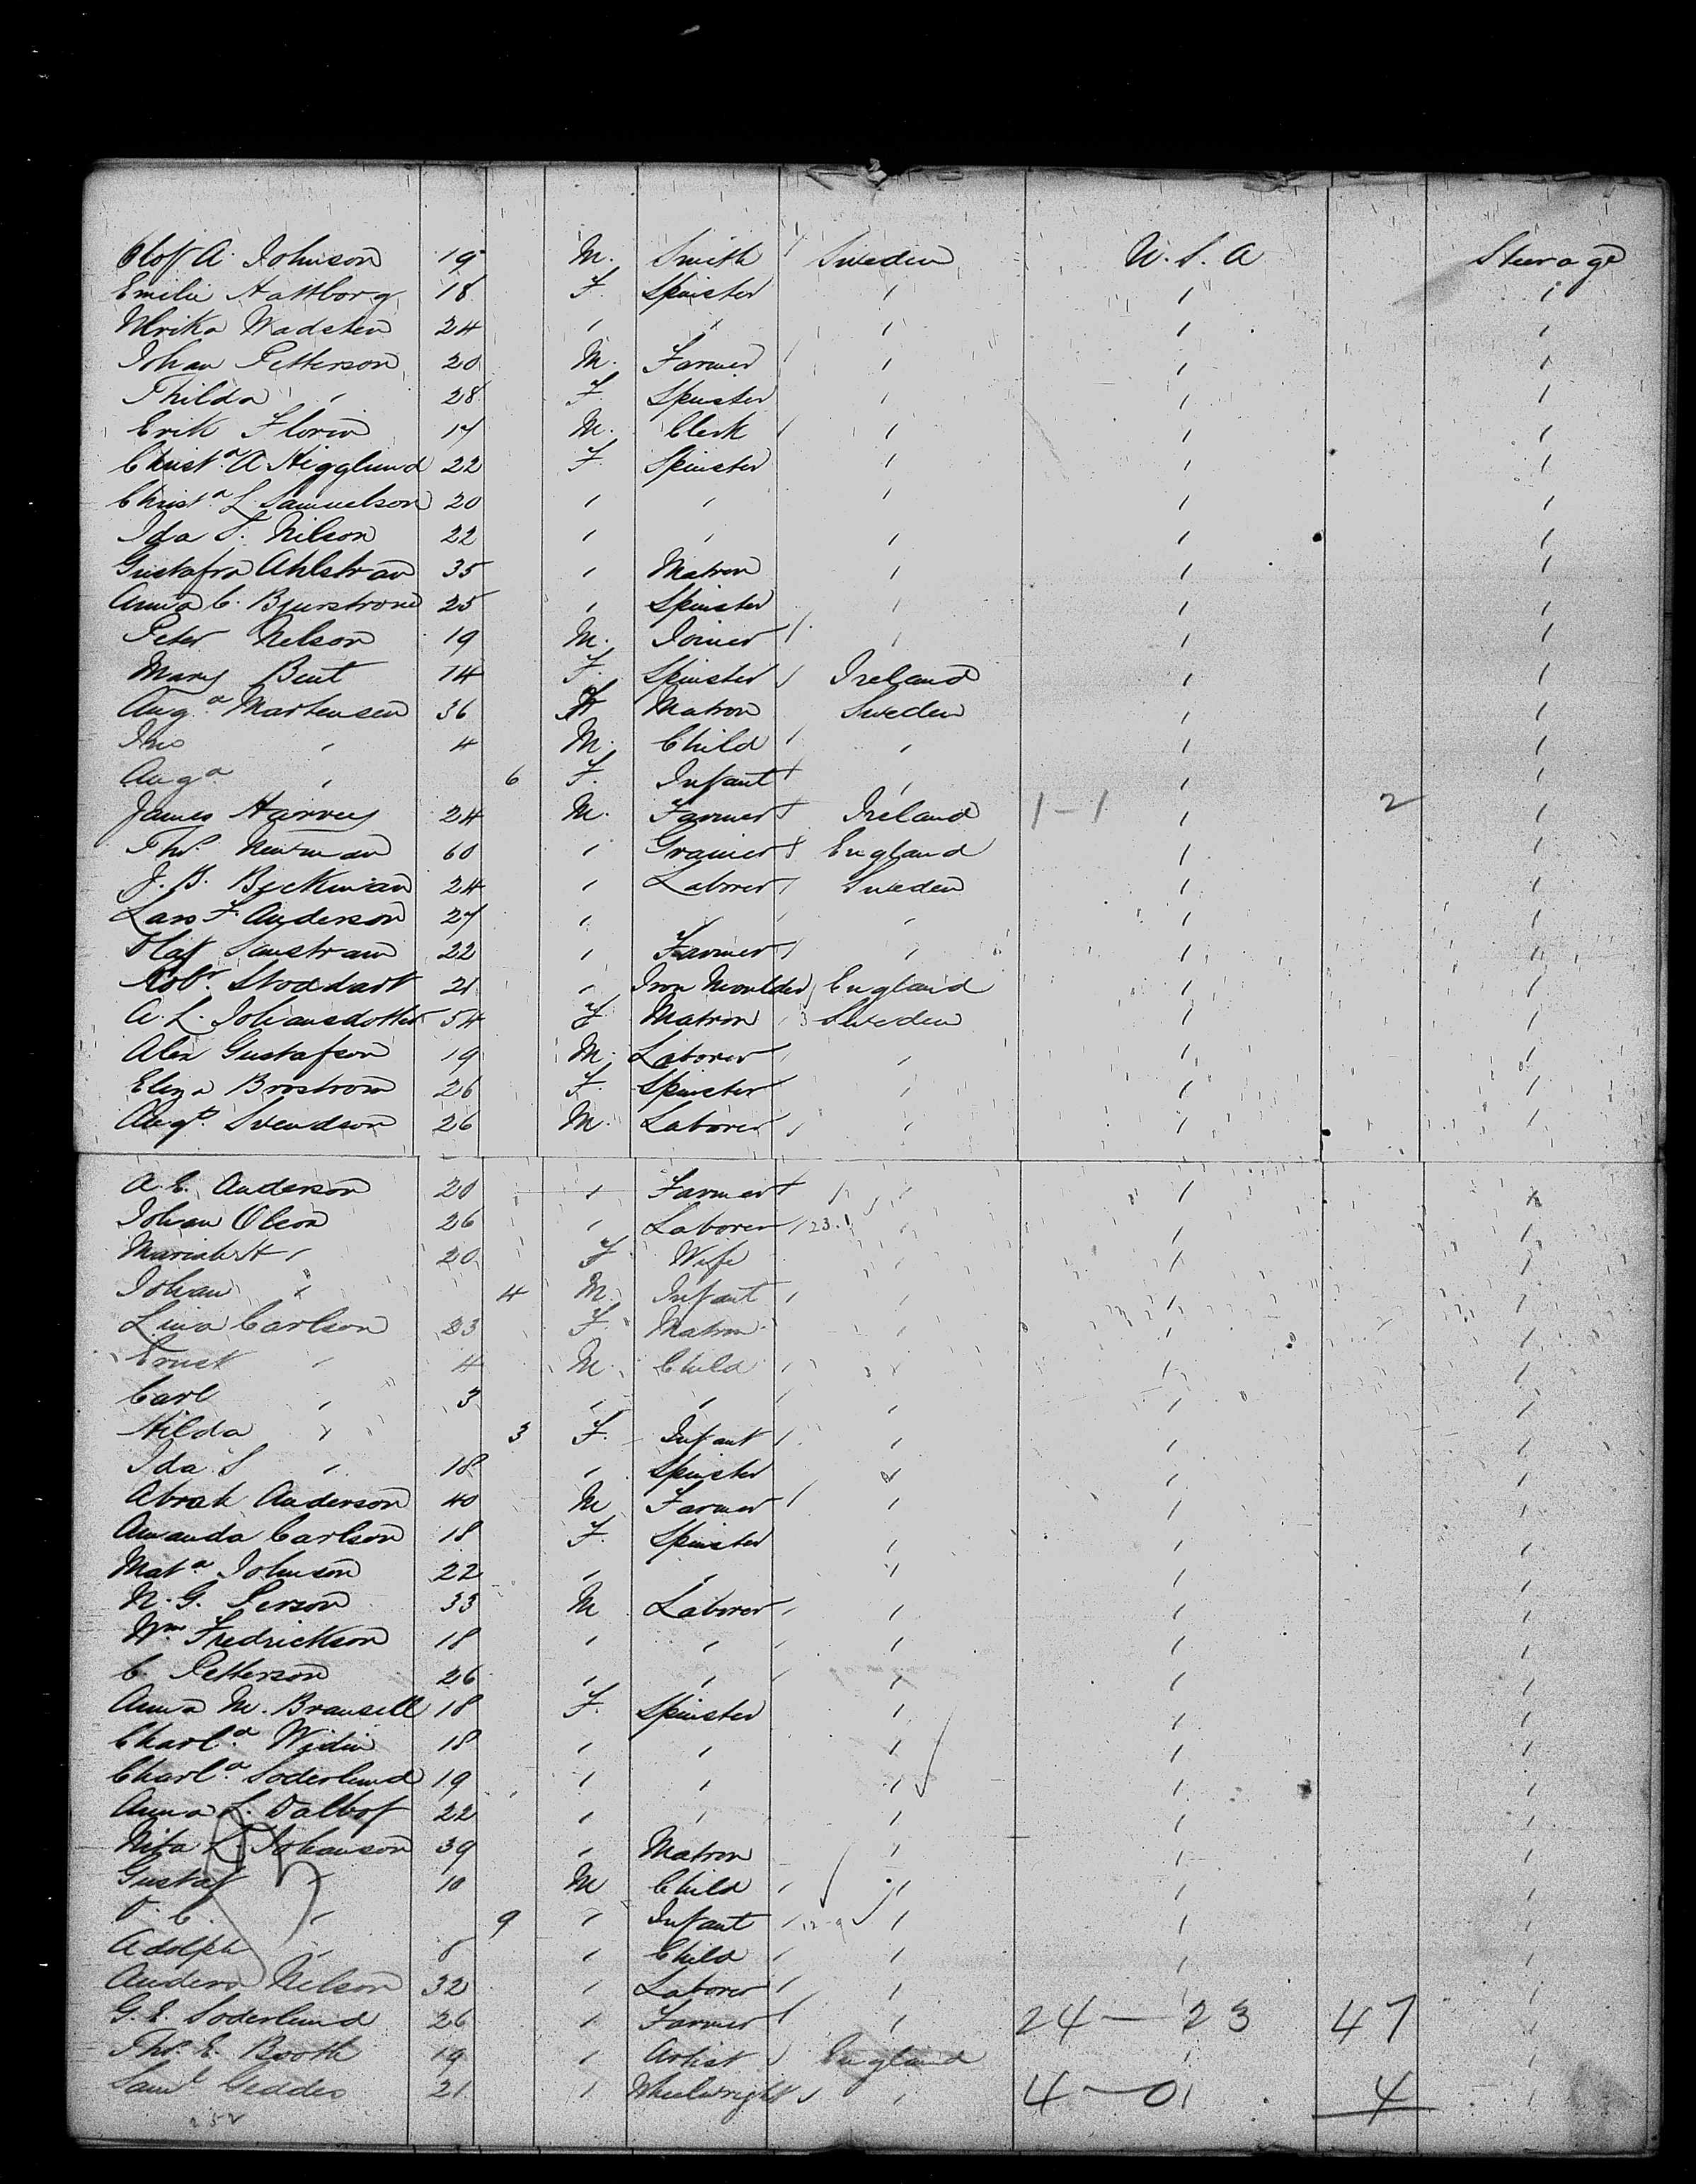 Olof A. Johnson 19 M. Smith Sweden U.S.A Steerage
Emilie Hattborg 18 F. Spinster " " "
Ulrika Wadsten 24 " " " " "
Johan Petterson 20 M. Farmer " " "
Thilda " 28 F. Spinster " " "
Erik Florin 17 M. Clerk " " "
Christa A Higglund 22 F. Spinster " " "
Christa L Samuelson 20 " " " " "
Ida S. Nilson 22 " " " " "
Gustafva Ahlstran 35 " Matron " " "
Anna C. Bjurstrom 25 " Spinster " " "
Peter Nelson 19 M. Joiner " " "
Mary Bent 14 F. Spinster Ireland " "
Auga Martensen 36 F Matron Sweden " "
Jno " 4 M. Child " " "
Auga " 6 F. Infant " " "
James Harvey 24 M. Farmer Ireland 1-1 " 2 "
Thos. Newman 60 " Grainer England " "
J. B. Beckman 24 " Laborer Sweden " "
Lars F. Anderson 27 " " " " "
Olaf Sunstram 22 " Farmer " " "
Robt. Stoddart 21 " Iron Moulder England " "
A. L. Johansdotter 54 F Matron Sweden " "
Alex Gustafson 19 M. Laborer " " "
Eliza Brostrom 26 F. Spinster " " "
Augt. Svendson 26 M. Laborer " " "
A. E. Anderson 20 " Farmer " " "
Johan Olson 26 " Laborer 23. " " "
Mariah H " 20 F Wife " " "
Johan " 4 M. Infant " " "
Lina Carlson 23 F. Matron " " "
Ernst " 4 M. Child " " "
Carl " 3 " " " " "
Hilda " 3 F. Infant " " "
Ida S " 18 " Spinster " " "
Abrah Anderson 40 M Farmer " " "
Amanda Carlson 18 F. Spinster " " "
Mata Johnson 22 " " " " "
N. G. Person 33 M Laborer " " "
Wm Fredrickson 18 " " " " "
C. Petterson 26 " " " " "
Anna M. Bransell 18 F. Spinster " " "
Charla Widin 18 " " " " "
Charla Soderlund 19 " " " " "
Anna L. Dalbof 22 " " " " "
Nita L. Johanson 39 " Matron " " "
Gustaf " 10 M Child " " "
" 9 " Infant " " "
Adolph " 8 " Child " " "
Anders Nelson 32 " Laborer " " "
G. E. Soderlund 26 " Farmer " 24 — 23 47 "
Thos. E. Booth 19 " Artist England " "
Saml Geddes 21 " Wheelwright " 4 — 0 " 4 "
252